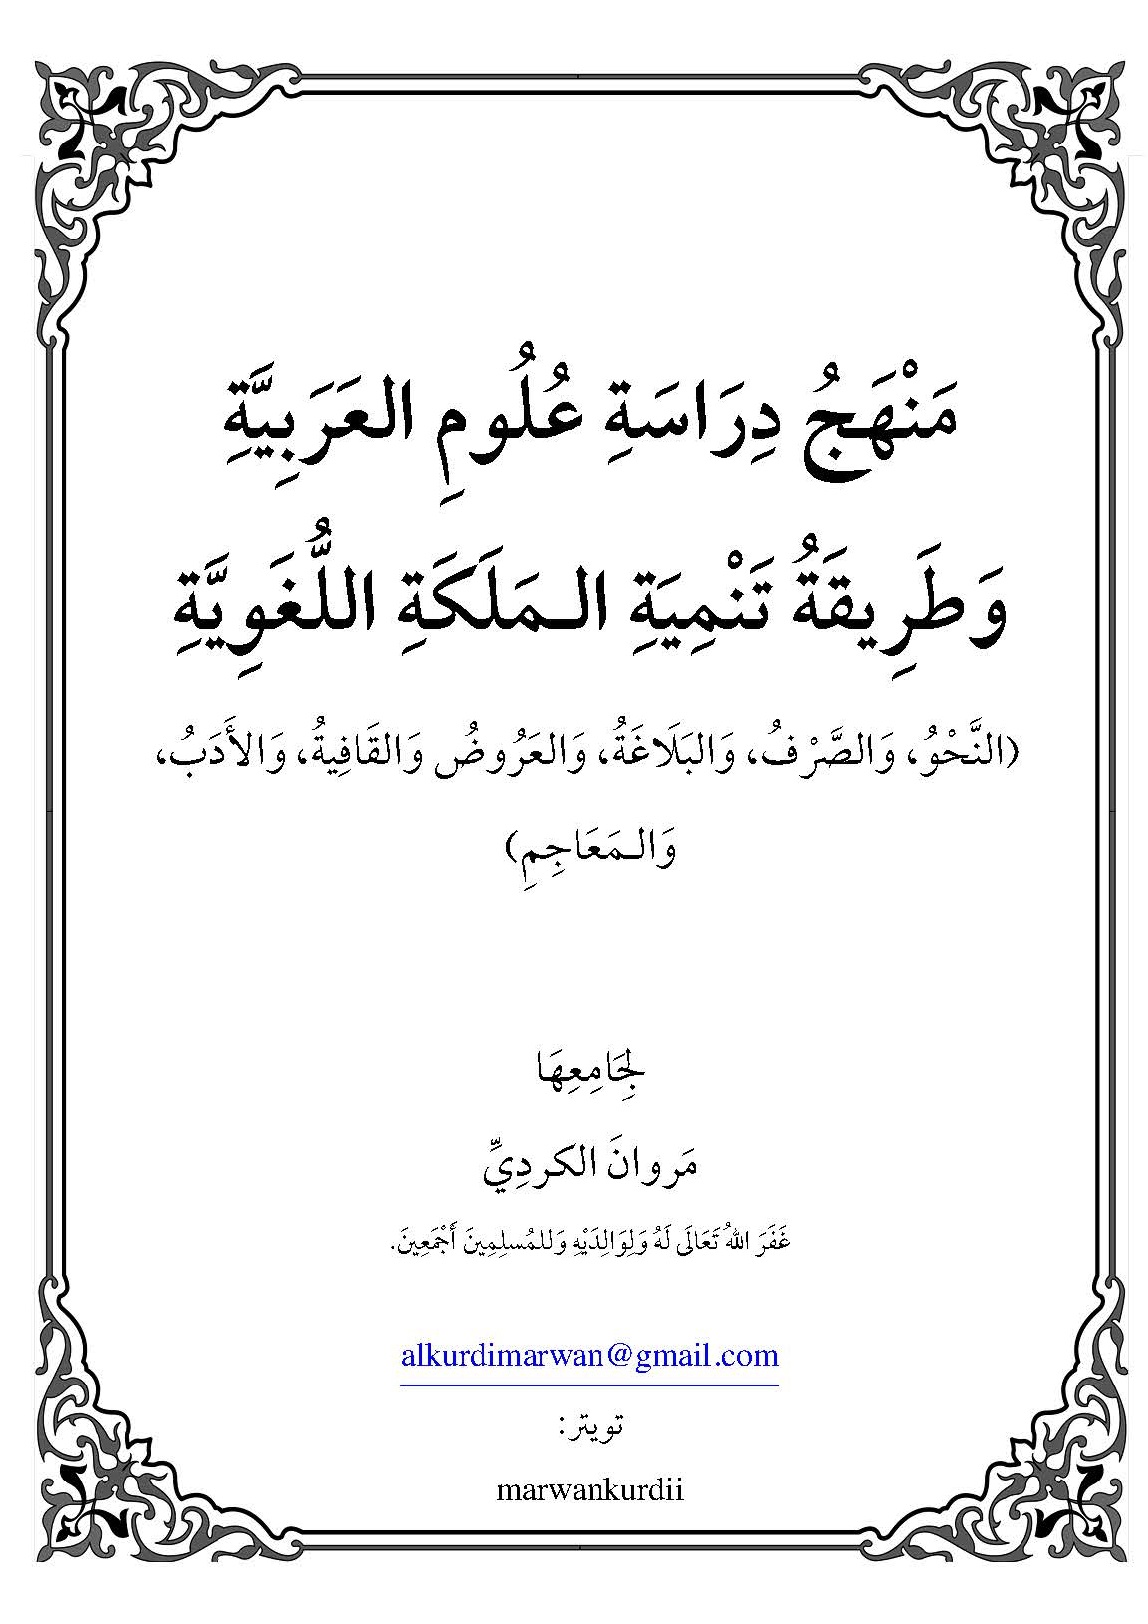 مَنْهَجُ دِرَاسَةِ عُلُومِ العَرَبِيَّةِ
وَطَرِيقَةُ تَنْمِيَةِ الـمَلَكَةِ اللُّغَوِيَّةِ
(النَّحْوُ، وَالصَّرْفُ، وَالبَلَاغَةُ، وَالعَرُوضُ وَالقَافِيةُ، وَالأَدَبُ،
وَالـمَعَاجِمِ)
لِجَامِعِهَا
مَروانَ الكردِيِّ
غَفَرَ اللهُ تَعَالَى لَهُ وَلِوَالِدَيْهِ وَللمُسلِمِينَ أَجْمَعِينَ.
alkurdimarwan@gmail.com
تويتر:
marwankurdii